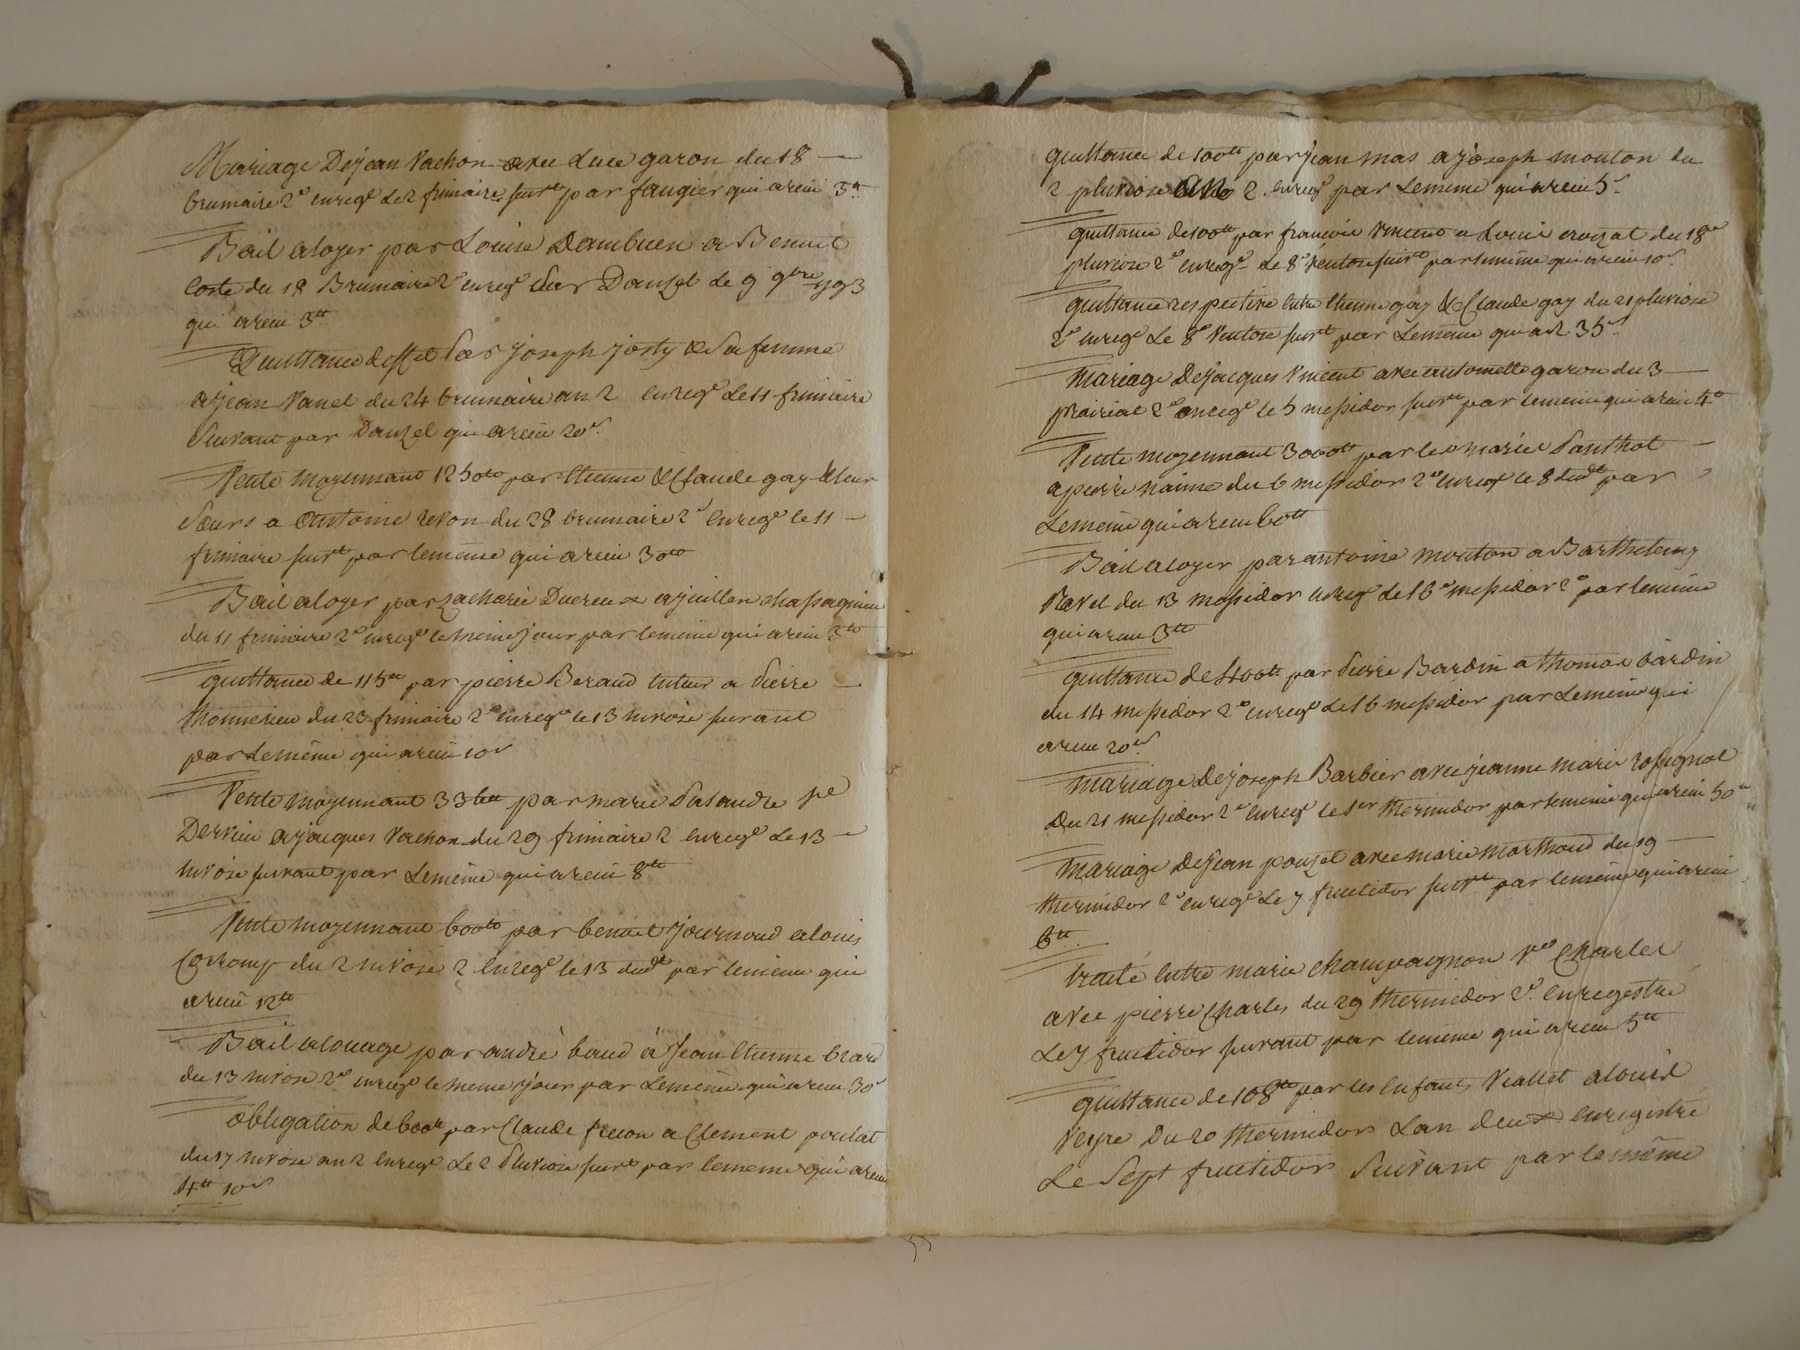 Mariage Dejean Vachon avec Luce garon du 18 —
brumaire 2e enregé Le 2 frimaire suivt par faugier qui a reçu 3tt
Bail a loyer par Louise Dambuen a Benoit
Coste du 18 Brumaire 2e enregé par Danzel Le 9 9bre 1793
qui a reçu 3tt
Quittance deffet par joseph josty & Sa femme
a jean Vanel du 24 brumaire an 2 enregé Le 11 frimaire
Suivant par Danzel qui a reçu 20s
Vente moyennant 1250tt par Etienne & Claude gay & leur
Sœurs a antoine revon du 28 brumaire 2e enregé le 11 —
frimaire suivt par lemême qui a reçu 30tt
Bail a loyer par zacharie Ducreux a juillen chassagnieu
du 11 frimaire 2e enregé le meme jour par lemême qui a reçu 3tt
quittance de 115tt par pierre Beraud tuteur a pierre —
thonnerieu du 23 frimaire 2e enregé le 13 nivose suivant
par Lemême qui a reçu 10s
Vente moyennant 336tt par marie Palandre ve
Dervieu a jacques Vachon du 29 frimaire 2 enregé Le 13 —
nivose suivant par Lemême qui a reçu 8tt
Vente moyennant 600tt par benoit journoud a louis
du 2 nivose 2 enregé le 13 dudt par lemême qui
a reçu 12tt
Bail a louage par andré baud à Jean Etienne
du 13 nivose 2e enregé le meme jour par Lemême qui a reçu 30s
obligation de 600tt par Claude frecon a Clement poulat
du 17 nivose an 2 enregé Le 2 Pluviose suivt par lemême qui a reçu
4tt 10s
quittance de 100tt par jean mas a joseph mouton du
2 pluviose an 2 enregé par Lemême qui a reçu 5s
quittance de 100tt par francois Vincent a Louis crozat du 18e
pluviose 2e enregé Le 8e ventose suivt par lemême qui a reçu 10s
quittance respective entre Etienne gay & Claude gay du 21 pluviose
2e enregé Le 8e Ventose suivt par Lemême qui a R 35s
Mariage Dejacques Vincent avec antoinette garon du 3 —
prairial 2e enregé le 5 messidor suivt par lemême qui a reçu 4tt
Vente moyennant 3000tt par les mariés Panthot —
a pierre naime du 6 messidor 2e enregé le 8 dudt par
Lemême qui a reçu 60tt
Bail a loyer par antoine mouton a Barthelemy
Ravel du 13 messidor enregé Le 16e messidor 2e par lemême
qui a reçu 3tt
quittance de 400tt par Pierre Bardin a thomas bardin
du 14 messidor 2e enregé Le 16 messidor par Lemême qui
a reçu 20s
Mariage Dejoseph Barbier avec jeanne marie rossignol
Du 21 messidor 2e enregé le 1er thermidor par lemême qui a reçu 50s
Mariage Dejean pouzet avec marie marthoud du 19 —
thermidor 2e enregé Le 7 fructidor suivt par lemême qui a reçu
6tt
traité entre marie champagnon ve Charles
avec pierre Charles du 29 thermidor 2e enregestré
Le 7 fructidor suivant par lemême qui a reçu 5tt
quittance de 168tt par les enfants Viallet a louis
Veyre Du 20 thermidor Lan deux enregestré
Le Sept fructidor Suivant par lemême